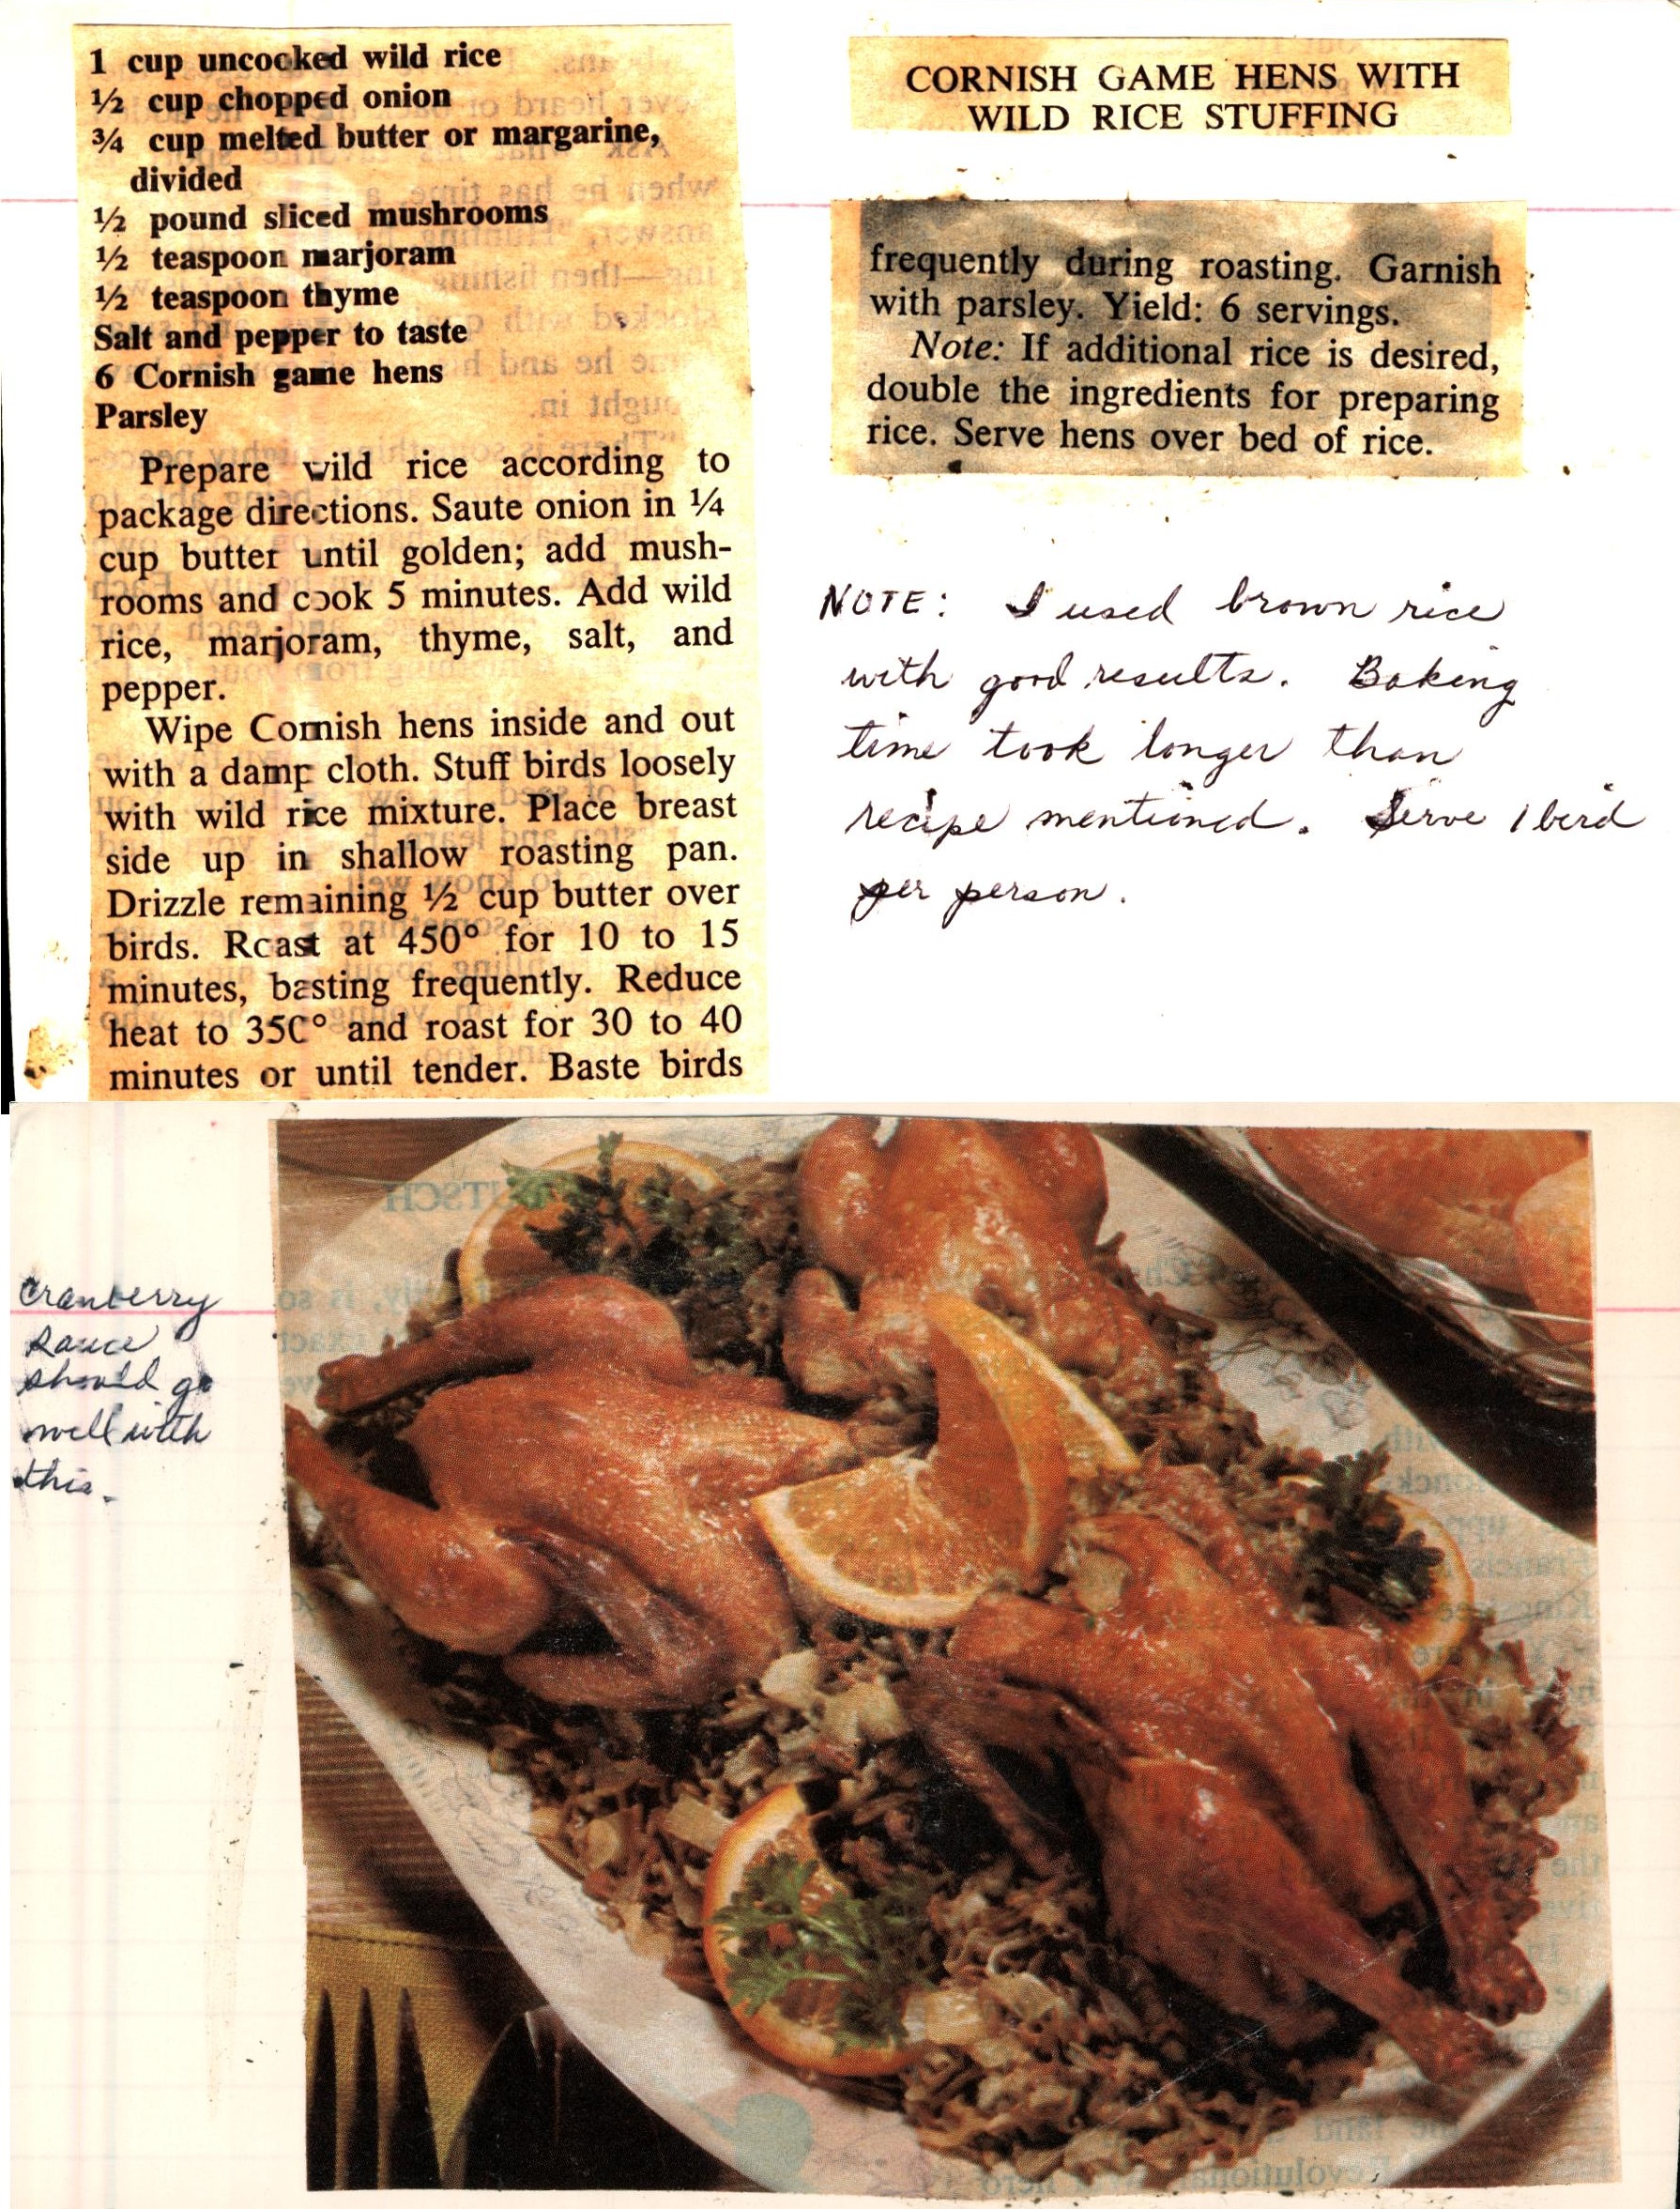 1 cup uncooked wild rice
½ cup chopped onion
¾ cup melted butter or margarine,
divided
½ pound sliced mushrooms
½ teaspoon marjoram
½ teaspoon thyme
Salt and pepper to taste
6 Cornish game hens
Parsley
Prepare wild rice according to
package directions. Saute onion in ¼
cup butter until golden; add mush-
rooms and cook 5 minutes. Add wild
rice, marjoram, thyme, salt, and
pepper.
Wipe Cornish hens inside and out
with a damp cloth. Stuff birds loosely
with wild rice mixture. Place breast
side up in shallow roasting pan.
Drizzle remaining ½ cup butter over
birds. Roast at 450° for 10 to 15
minutes, basting frequently. Reduce
heat to 350° and roast for 30 to 40
minutes or until tender. Baste birds
CORNISH GAME HENS WITH
WILD RICE STUFFING
frequently during roasting. Garnish
with parsley. Yield: 6 servings.
Note: If additional rice is desired,
double the ingredients for preparing
rice. Serve hens over bed of rice.
NOTE: I used brown rice
with good results. Baking
time took longer than
recipe mentioned. Serve 1 bird
per person.
Cranberry
sauce
should go
well with
this.